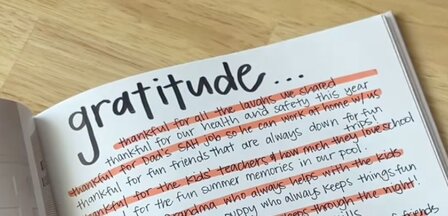 gratitude...
thankful for all the laughs we shared
thankful for our health and safety this year
thankful for Dad's SAH job so he can work at home w/ us
thankful for fun friends that are always down for fun trips!
thankful for the kids' teachers & how much they love school
for the fun summer memories in our pool.
Grandma who always helps with the kids
puppy who always keeps things fun
through the night!
friends